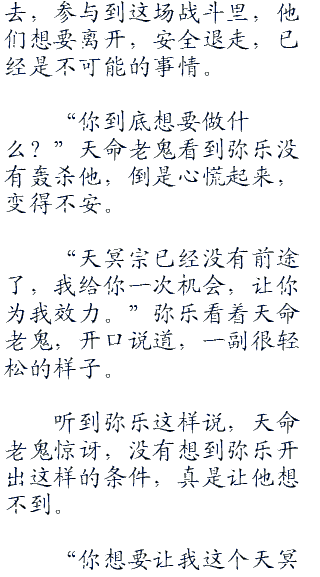 去，参与到这场战斗里，他
们想要离开，安全退走，已
经是不可能的事情。
“你到底想要做什
么？”天命老鬼看到弥乐没
有轰杀他，倒是心慌起来，
变得不安。
“天冥宗已经没有前途
了，我给你一次机会，让你
为我效力。”弥乐看着天命
老鬼，开口说道，一副很轻
松的样子。
听到弥乐这样说，天命
老鬼惊讶，没有想到弥乐开
出这样的条件，真是让他想
不到。
“你想要让我这个天冥